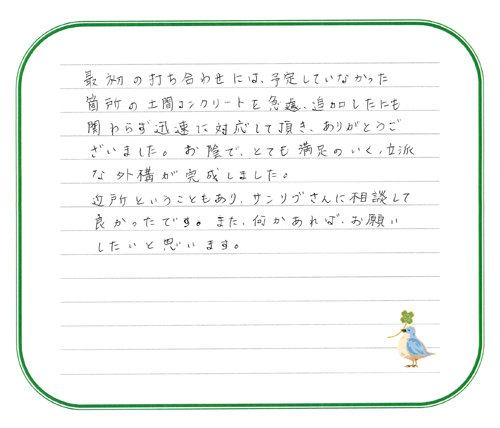 最初の打ち合わせには、予定していなかった
箇所の土間コンクリートを急遽、追加したにも
関わらず迅速に対応して頂き、ありがとうご
ざいました。お陰で、とても満足のいく、立派
な外構が完成しました。
近所ということもあり、サンリブさんに相談して
良かったです。また、何かあれば、お願い
したいと思います。